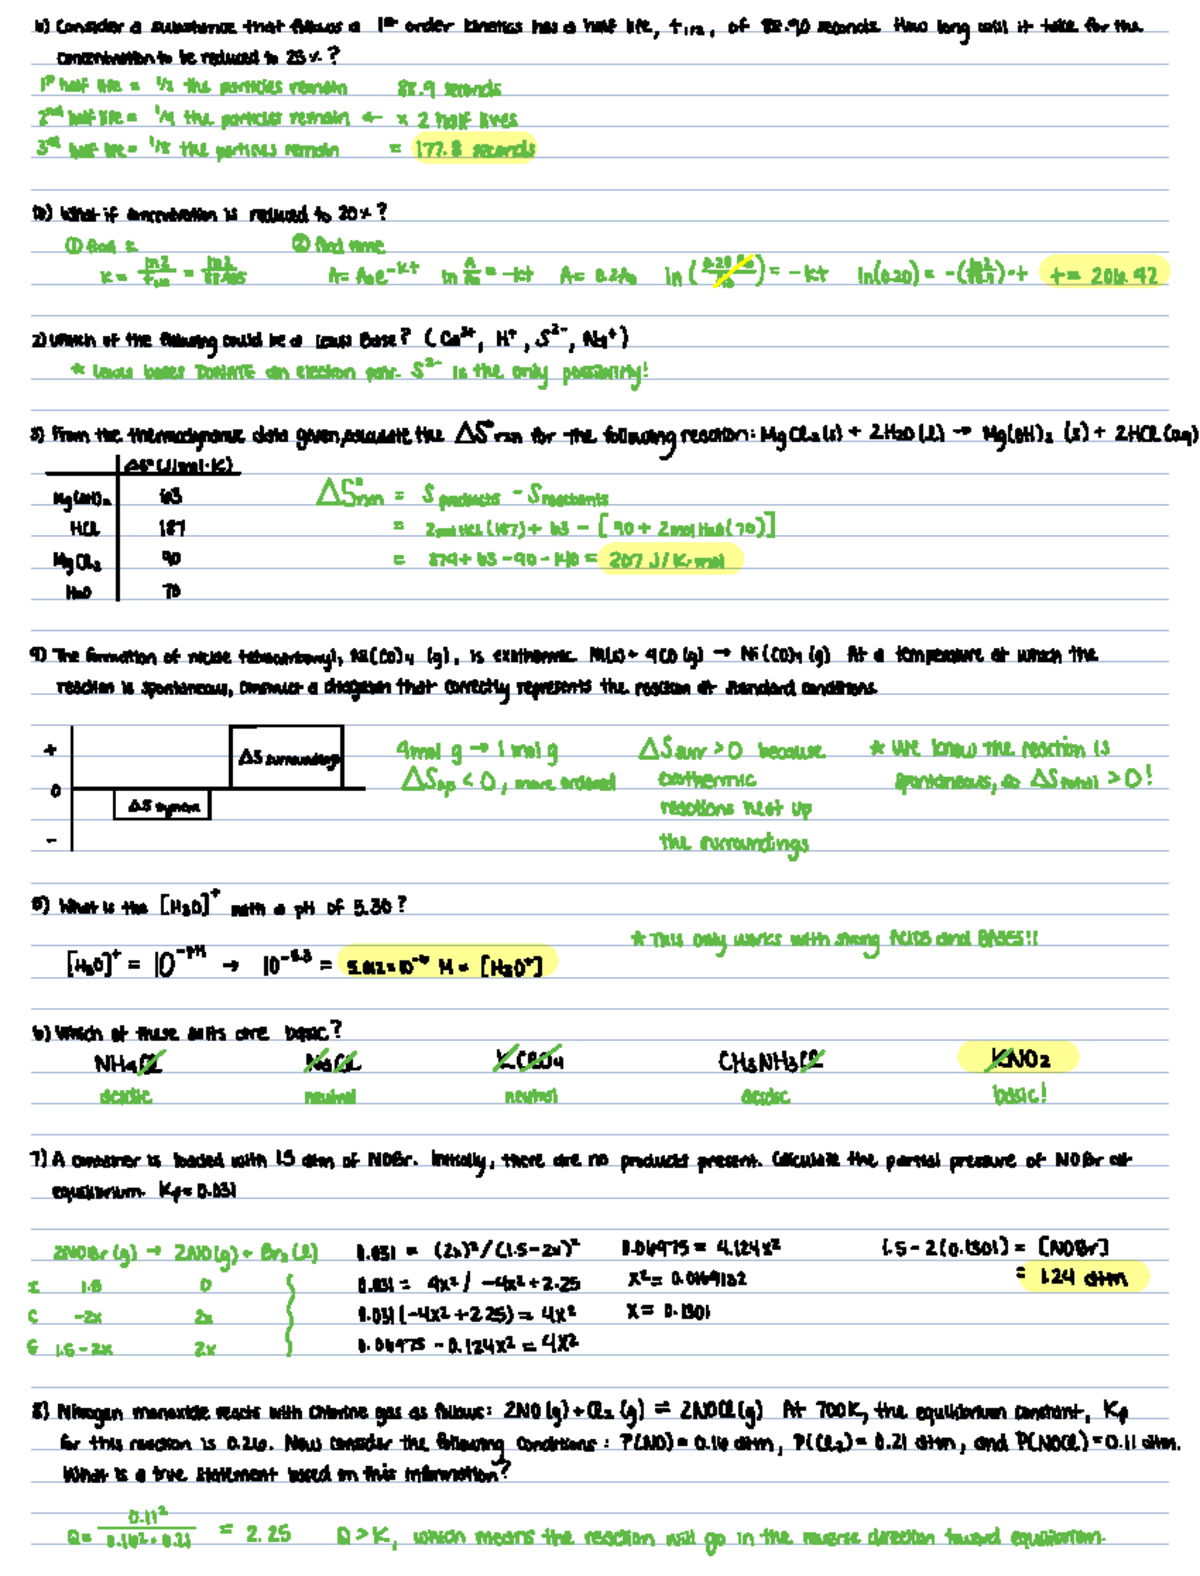 1) Consider a substance that follows a 1st order kinetics has a half life, t1/2, of 88.90 seconds. How long will it take for the
concentration to be reduced to 25%?
1st half life = 1/2 the particles remain 88.9 seconds
2nd half life = 1/4 the particles remain ← x 2 half lives
3rd half life = 1/8 the particles remain = 177.8 seconds
1b) What if concentration is reduced to 20%?
① find k ② find time
K = ln2/t1/2 = ln2/ A = A₀e^-kt ln A/A₀ = -kt A = 0.2A₀ ln( ) = -kt ln(0.20) = -(ln2/88.9)·t t = 206.42
2) Which of the following could be a Lewis Base? (Ca²⁺, H⁺, S²⁻, Na⁺)
* Lewis bases DONATE an electron pair. S²⁻ is the only possibility!
3) From the thermodynamic data given, calculate the ΔS°rxn for the following reaction: MgCl₂(s) + 2H₂O(l) → Mg(OH)₂ (s) + 2HCl(aq)
ΔS°(J/mol·K)
Mg(OH)₂ 63
HCl 187
MgCl₂ 90
H₂O 70
ΔS°rxn = S products - S reactants
= 2mol HCl(187) + 63 - [90 + 2mol H₂O(70)]
= 374 + 63 - 90 - 140 = 207 J/K·mol
4) The formation of nickle tetracarbonyl, Ni(CO)₄ (g), is exothermic. Ni(s) + 4CO(g) → Ni(CO)₄ (g) At a temperature at which the
reaction is spontaneous, construct a diagram that correctly represents the reaction at standard conditions.
+
0
-
ΔS surroundings
ΔS system
4mol g → 1 mol g
ΔSsys < 0, more ordered
ΔSsurr > 0 because
exothermic
reactions heat up
the surroundings
* We know the reaction is
spontaneous, so ΔStotal > 0!
5) What is the [H₃O]⁺ with a pH of 5.30?
* This only works with strong ACIDS and BASES!!
[H₃O]⁺ = 10^-pH → 10^-5.3 = 5.012×10⁻⁶ M = [H₃O⁺]
6) Which of these salts are basic?
NH₄Cl NaCl KClO₄ CH₃NH₃Cl KNO₂
acidic neutral neutral acidic basic!
7) A container is loaded with 1.5 atm of NOBr. Initially, there are no products present. Calculate the partial pressure of NOBr at
equilibrium. Kp = 0.031
2NOBr(g) → 2NO(g) + Br₂(l)
I 1.5 0
C -2x 2x
E 1.5-2x 2x
0.031 = (2x)²/(1.5-2x)²
0.031 = 4x²/ -4x² + 2.25
0.031(-4x² + 2.25) = 4x²
0.06975 - 0.124x² = 4x²
0.06975 = 4.124x²
x² = 0.0169132
x = 0.1301
1.5 - 2(0.1301) = [NOBr]
= 1.24 atm
8) Nitrogen monoxide reacts with Chlorine gas as follows: 2NO(g) + Cl₂ (g) ⇌ 2NOCl(g) At 700K, the equilibrium constant, Kp
for this reaction is 0.26. Now consider the following conditions: P(NO) = 0.16 atm, P(Cl₂) = 0.21 atm, and P(NOCl) = 0.11 atm.
What is a true statement based on this information?
Q = 0.11²/0.16²·0.21 = 2.25 Q > K, which means the reaction will go in the reverse direction toward equilibrium.